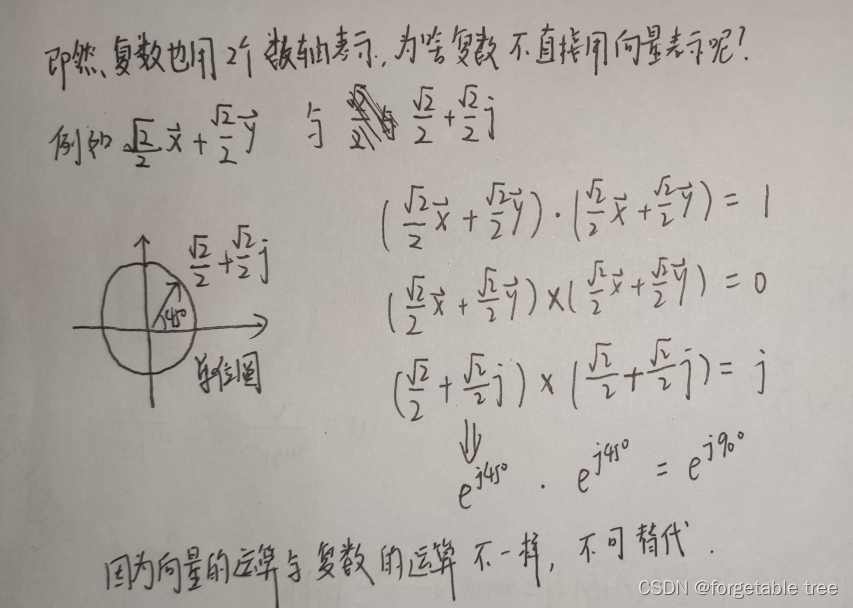 即然、复数也用2个数轴表示,为啥复数不直接用向量表示呢?
例如 √2/2 x⃗ + √2/2 y⃗ 与 √2/2 + √2/2 j
(√2/2 x⃗ + √2/2 y⃗) · (√2/2 x⃗ + √2/2 y⃗) = 1
√2/2 + √2/2 j
45°
单位圆
(√2/2 x⃗ + √2/2 y⃗) × (√2/2 x⃗ + √2/2 y⃗) = 0
(√2/2 + √2/2 j) × (√2/2 + √2/2 j) = j
⇓
e^{j45°} · e^{j45°} = e^{j90°}
因为向量的运算与复数的运算不一样,不可替代.
CSDN @forgetable tree